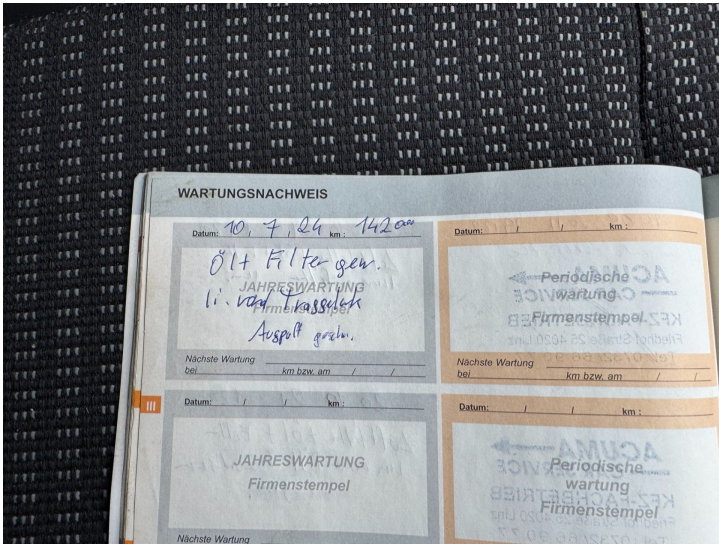 WARTUNGSNACHWEIS
Datum: 10, 7, 24 km: 142000
Öl + Filter gew.
JAHRESWARTUNG
li. vord
Firmenstempel
Auspuff
Nächste Wartung
bei km bzw. am / /
Datum: / / km:
Periodische
wartung
Firmenstempel
Nächste Wartung
bei km bzw. am / /
III
Datum: / / km:
JAHRESWARTUNG
Firmenstempel
Nächste Wartung
Datum: / / km:
Periodische
wartung
Firmenstempel